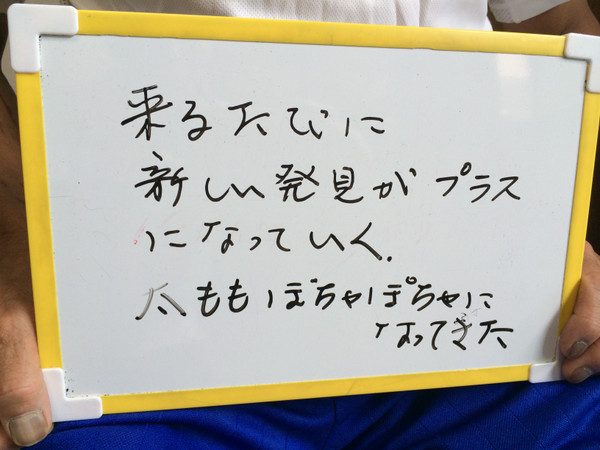 来るたびに
新しい発見がプラス
になっていく.
太ももぽちゃぽちゃに
なってきた